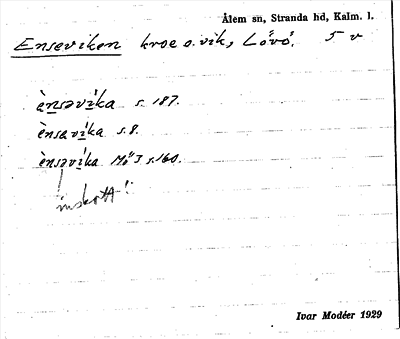 Ålem sn, Stranda hd, Kalm. l.
Enseviken kroe o. vik, Lövö. 5 v
ènsəvi̇ka s. 187.
ènsəvi̇ka s. 8.
ènsəvi̇ka Mö I s. 160.
inskott!
Ivar Modéer 1929